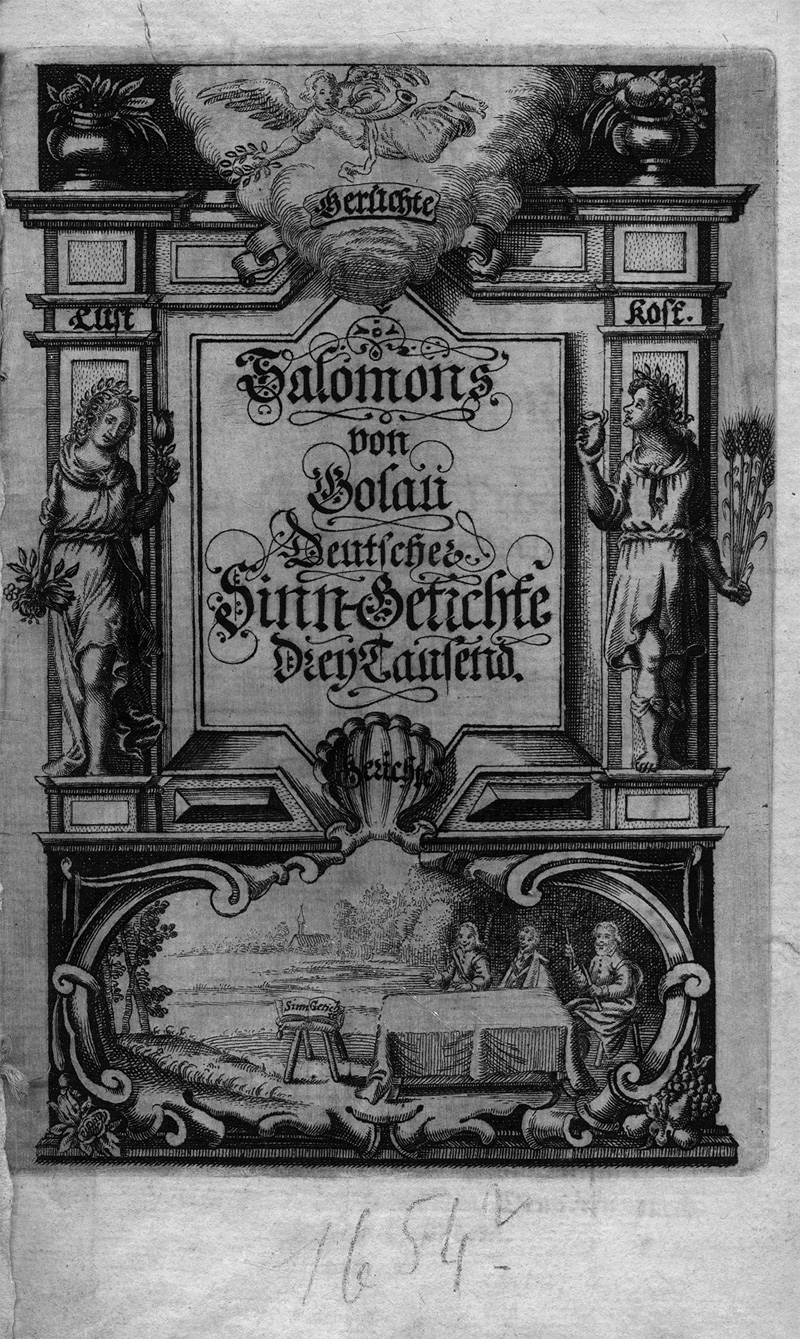 Gerüchte
Lust
Kost.
Salomons
von
Golau
Deutscher
Sinn-Getichte
Drey Tausend.
Gerichte
SinnGetich
1654.